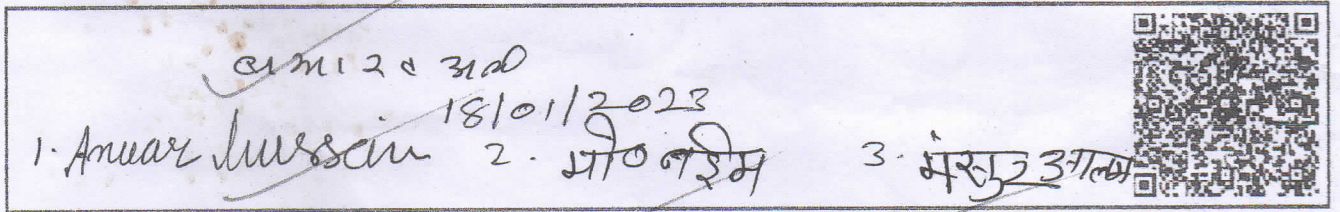 अली
18/01/2023
1. Anwar Hussain 2. मो० नईम 3. मंसूर आलम